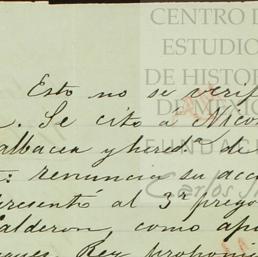 CENTRO D
ESTUDIO
DE HISTOR
DE MEXIC
FUNDAC
Carlos Sl
Esto no se verif
. Se citó á Nico
albacea y hered.ª de
: renuncia su acc
presentó al 3.er prego
alderon, como apo
Rey proponia